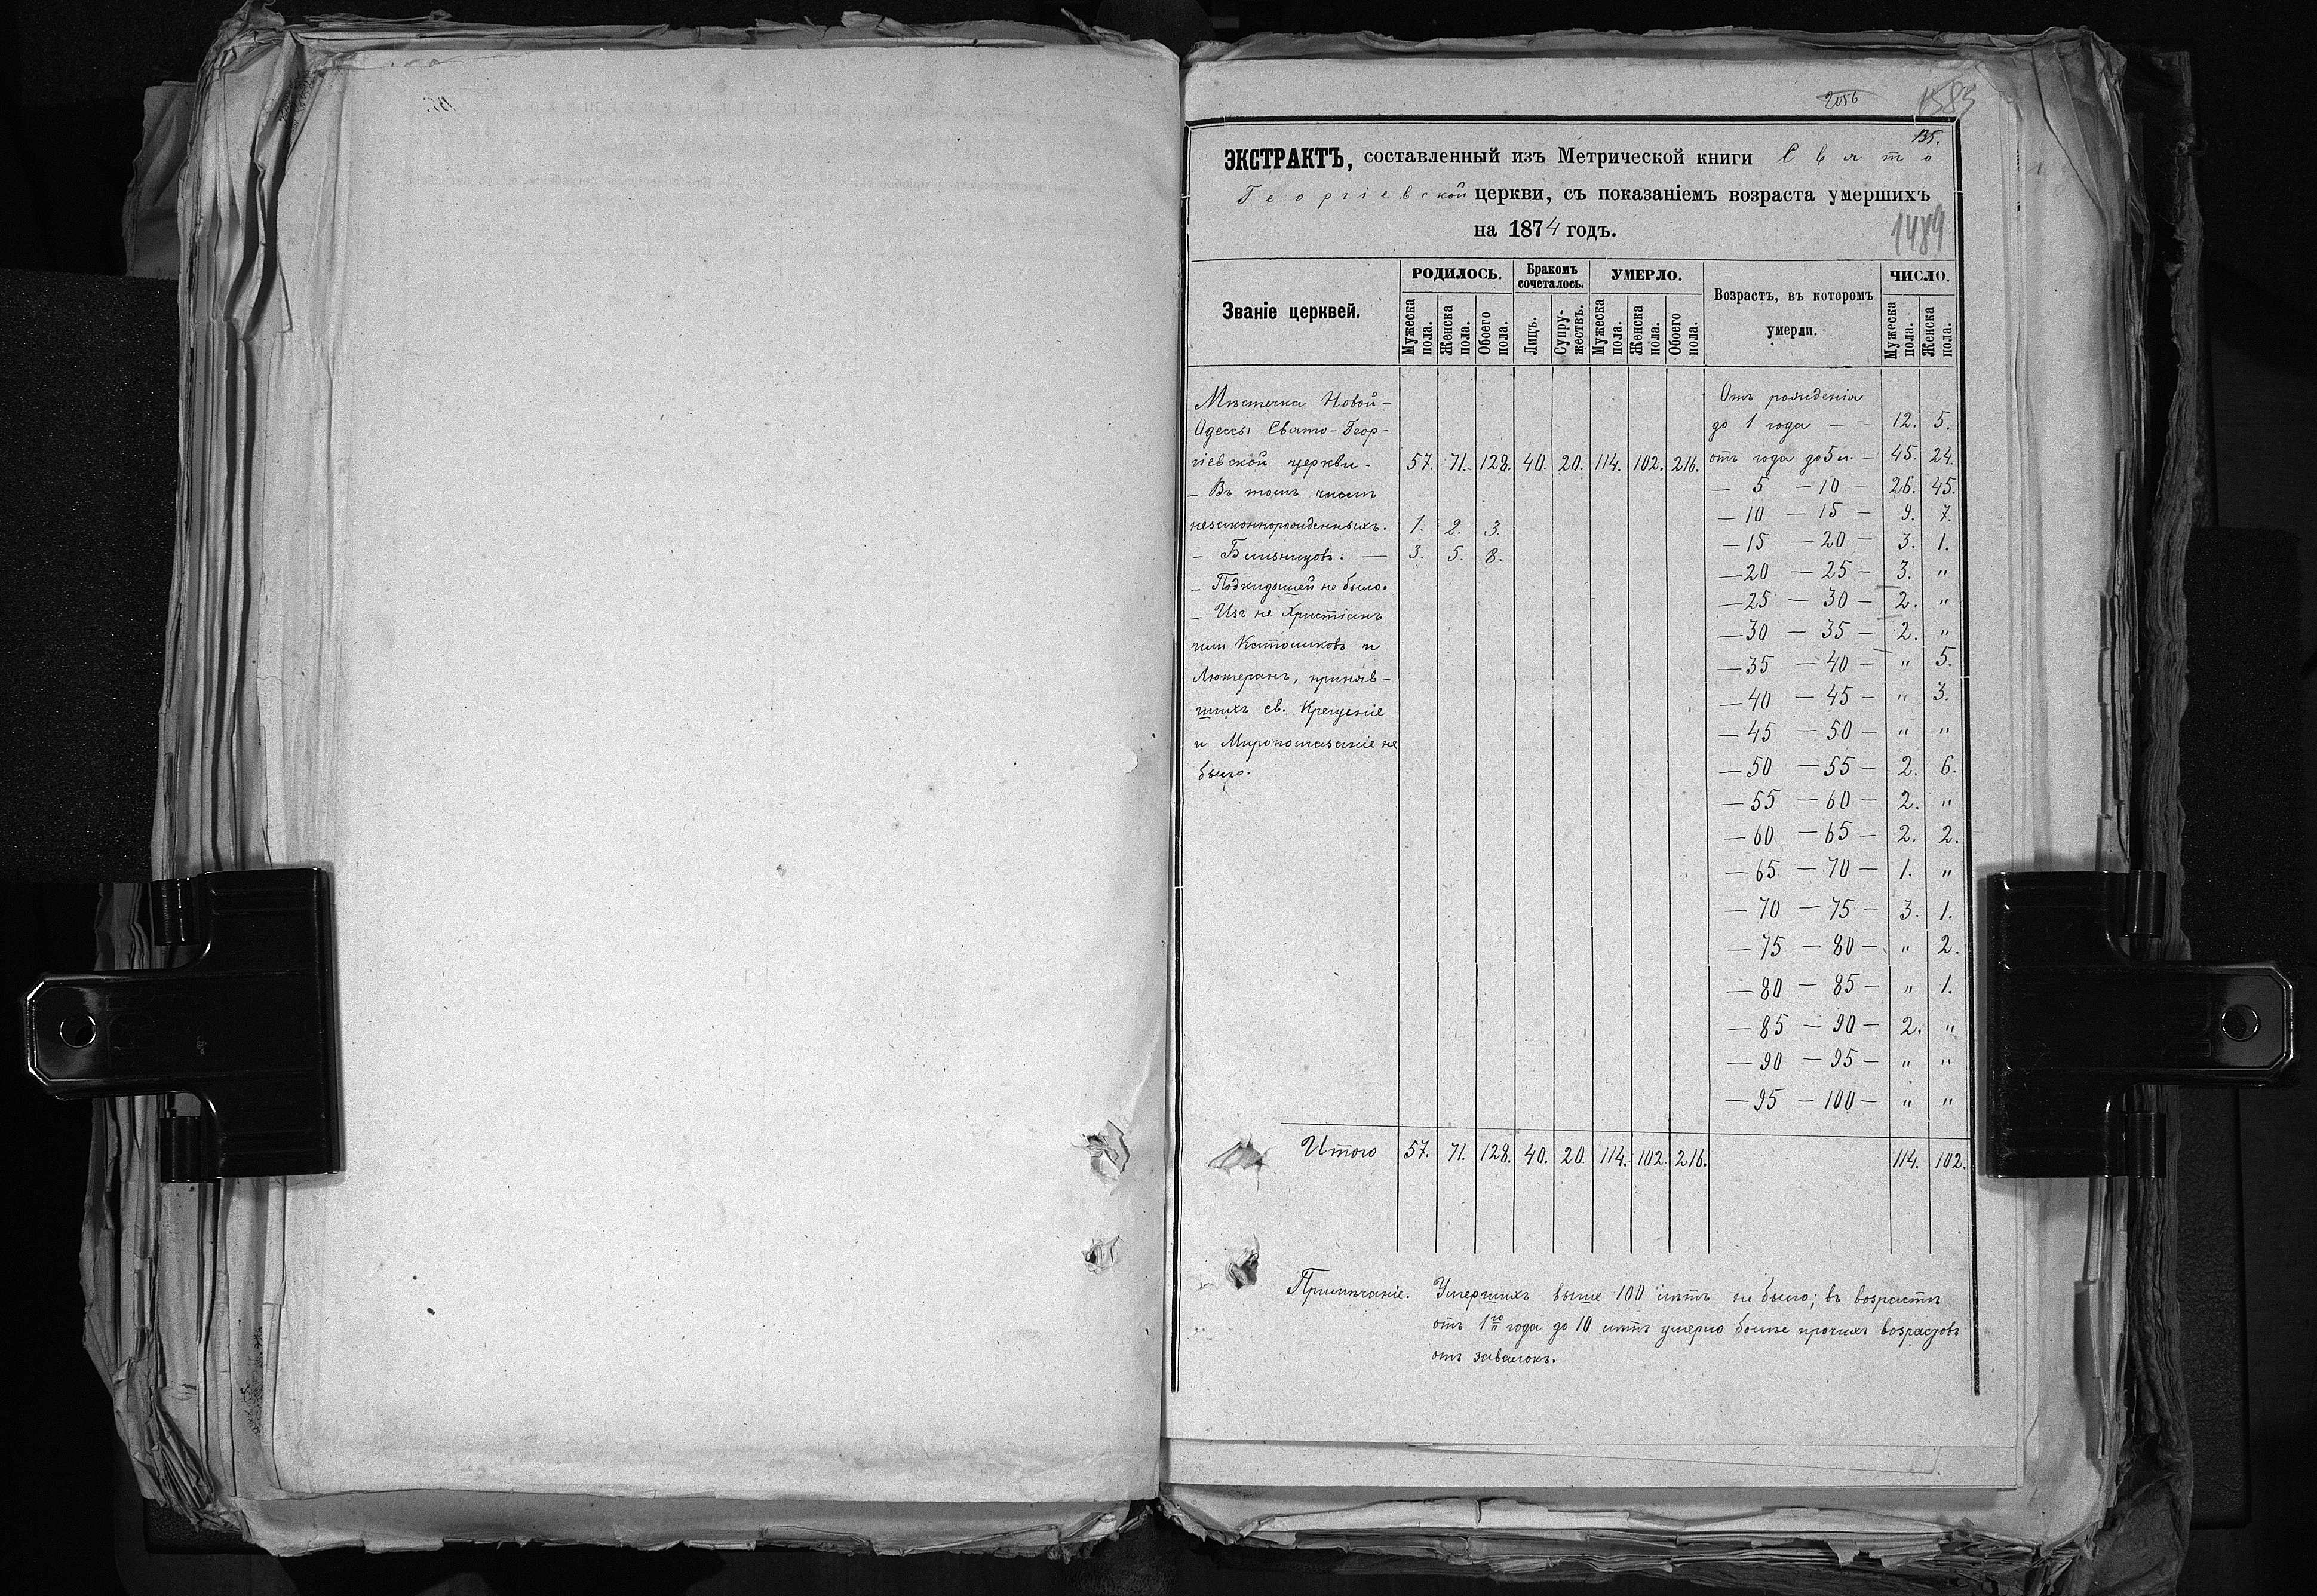 2056
1583
135.
ЭКСТРАКТЪ, составленный изъ Метрической книги Свято
Георгіевской церкви, съ показаніемъ возраста умершихъ
на 1874 годъ.
1489
Званіе церквей.
РОДИЛОСЬ.
Бракомъ сочеталось.
УМЕРЛО.
Возрастъ, въ которомъ умерли.
ЧИСЛО.
Мужеска пола.
Женска пола.
Обоего пола.
Лицъ.
Супружествъ.
Мужеска пола.
Женска пола.
Обоего пола.
Мужеска пола.
Женска пола.
Мѣстечка Новой-
Одессы Свято-Геор-
гіевской церкви. 57. 71. 128. 40. 20. 114. 102. 216.
— Въ томъ числѣ
незаконнорожденныхъ. 1. 2. 3.
— Близнецовъ. — 3. 5. 8.
— Подкидышей не было.
— Изъ не Христіанъ
или Католиковъ и
Лютеранъ, приняв-
шихъ св. Крещеніе
и Миропомазаніе не
было.
Отъ рожденія
до 1 года — — 12. 5.
отъ года до 5 л. — 45. 24.
— 5 — 10 — 26. 45.
— 10 — 15 — 9. 7.
— 15 — 20 — 3. 1.
— 20 — 25 — 3. "
— 25 — 30 — 2. "
— 30 — 35 — 2. "
— 35 — 40 — " 5.
— 40 — 45 — " 3.
— 45 — 50 — " "
— 50 — 55 — 2. 6.
— 55 — 60 — 2. "
— 60 — 65 — 2. 2.
— 65 — 70 — 1. "
— 70 — 75 — 3. 1.
— 75 — 80 — " 2.
— 80 — 85 — " 1.
— 85 — 90 — 2. "
— 90 — 95 — " "
— 95 — 100 — " "
Итого 57. 71. 128. 40. 20. 114. 102. 216. 114. 102.
Примѣчаніе. Умершихъ выше 100 лѣтъ не было; въ возрастѣ
отъ 1го года до 10 лѣтъ умерло болѣе прочихъ возрастовъ
отъ завалокъ.